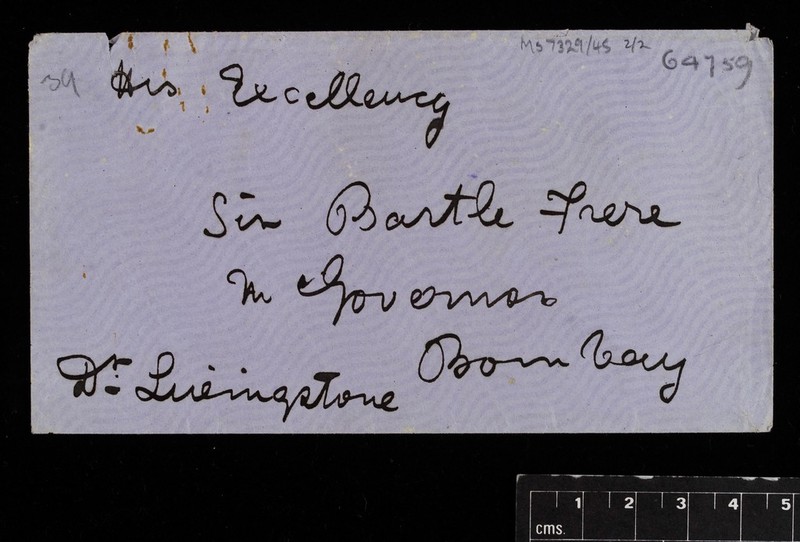 MS 7329/45 2/2
64759
39 His Excellency
Sir Bartle Frere
Governor
Bombay
Dr. Livingstone
1 2 3 4 5
cms.